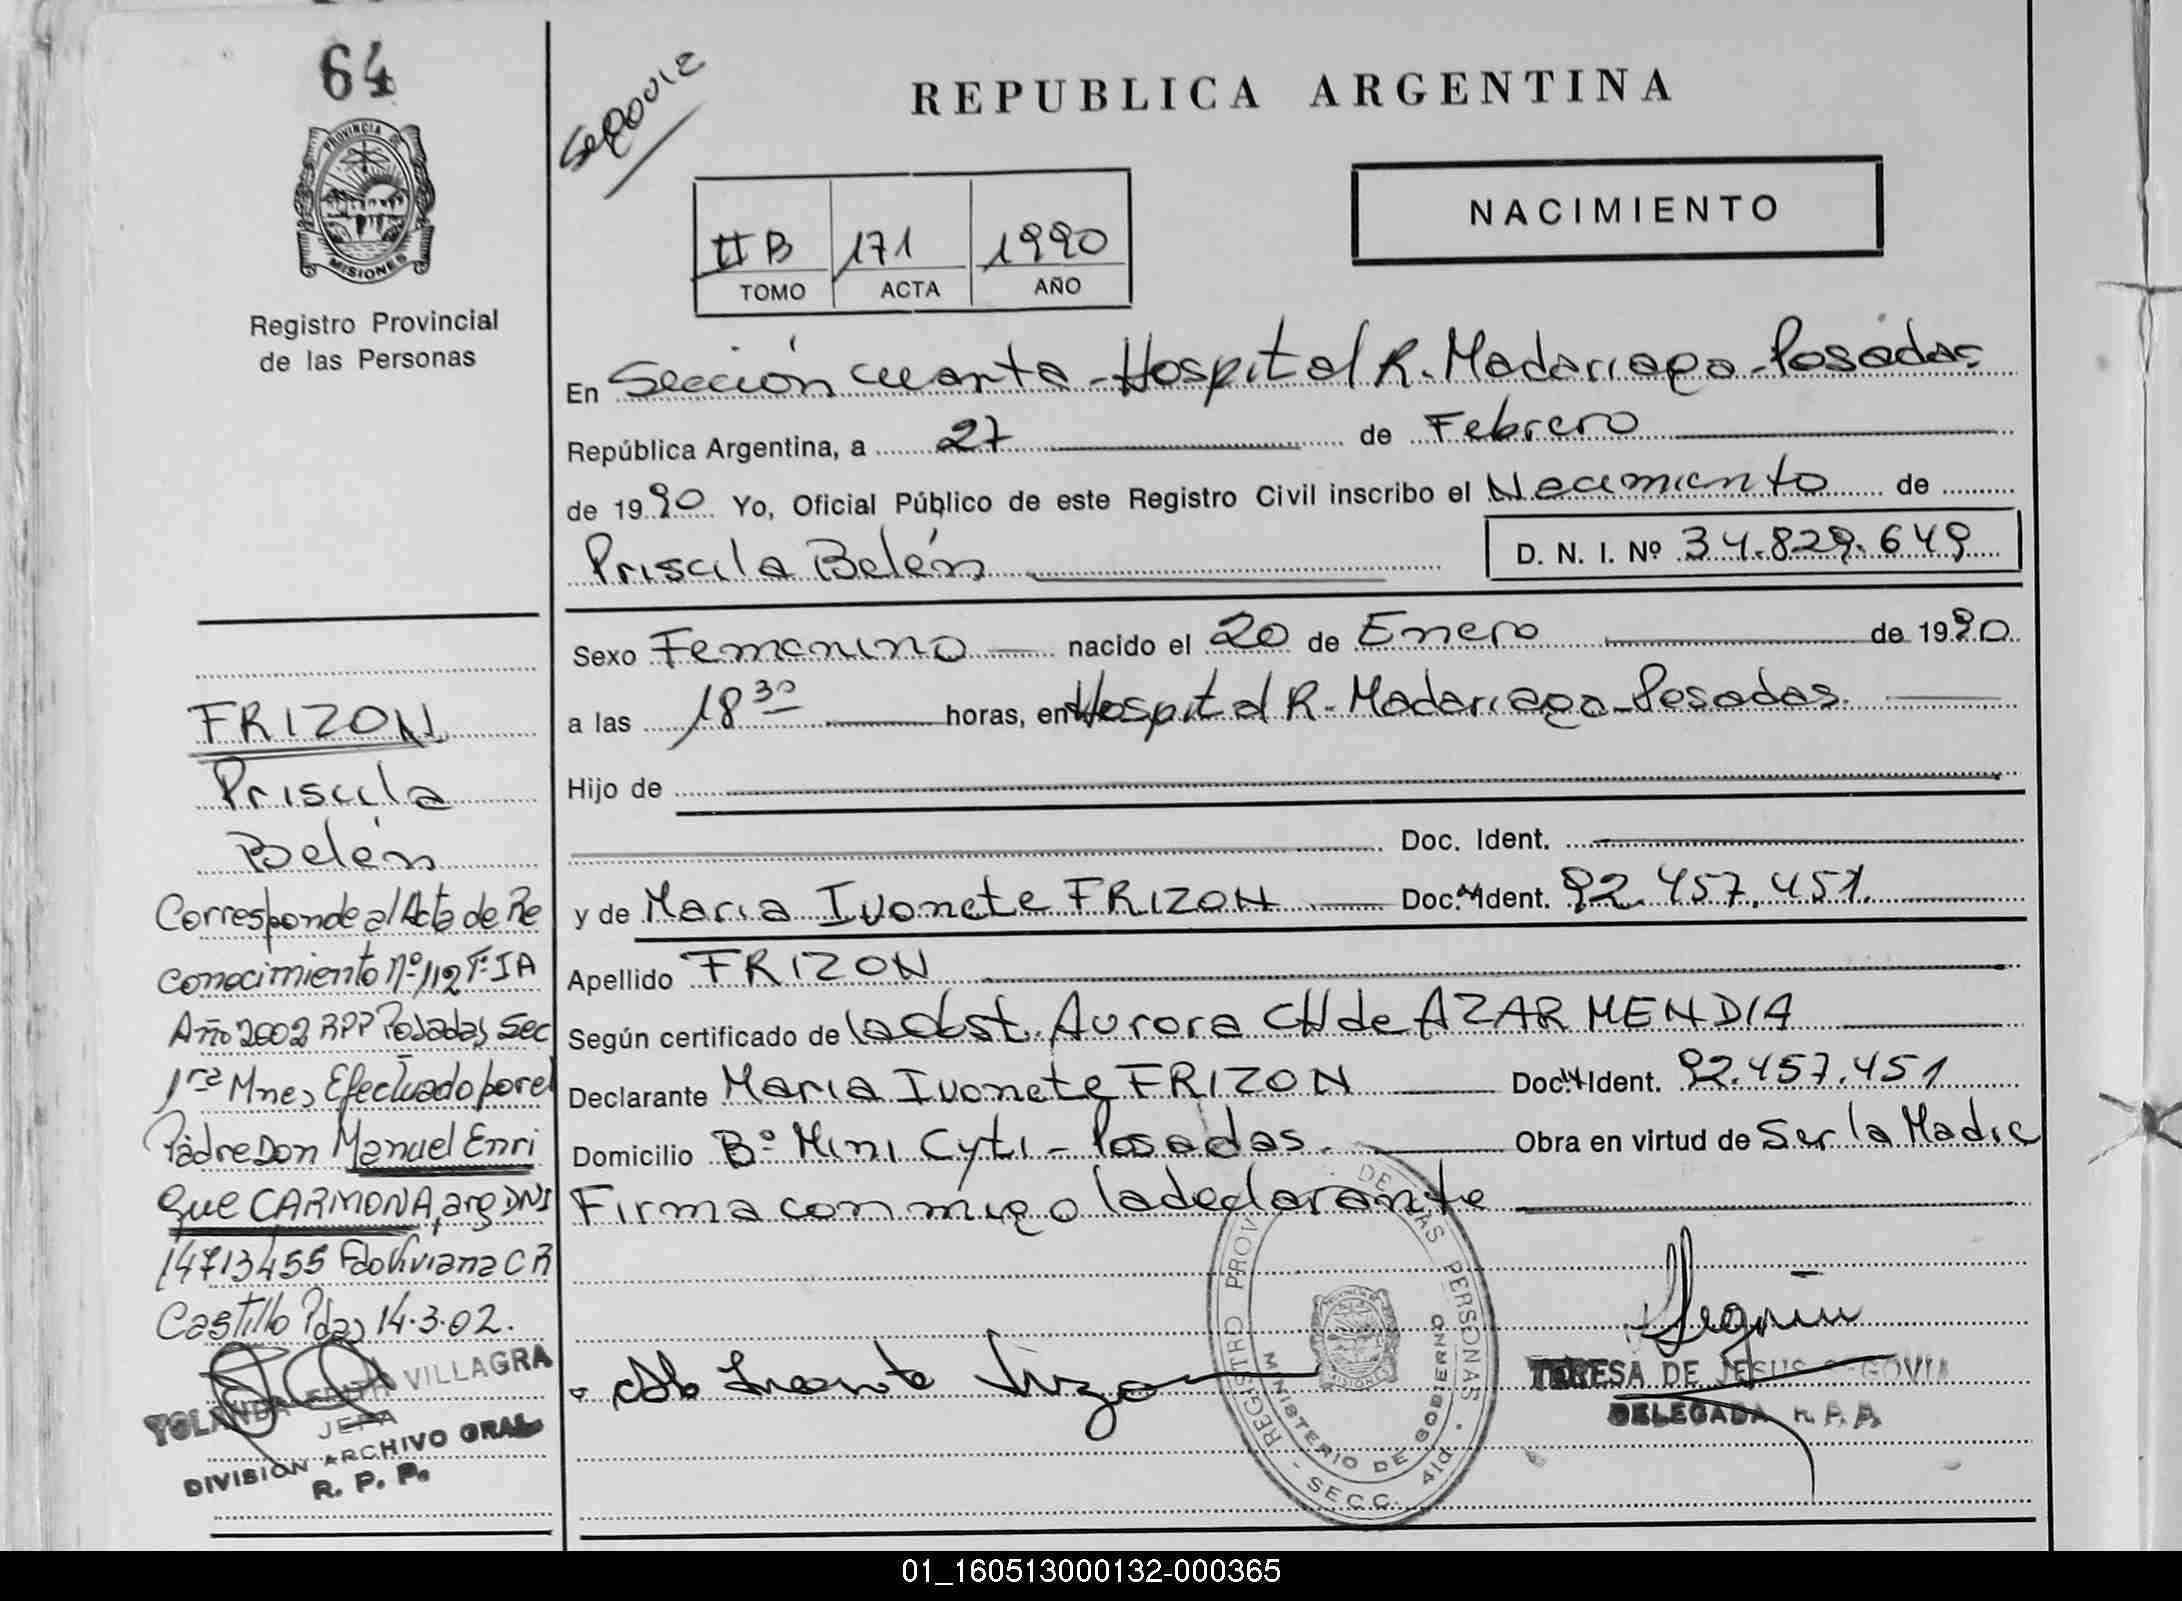 64
PROVINCIA DE
MISIONES
Registro Provincial
de las Personas
FRIZON
Priscila
Belén
Corresponde al Acta de Re
conocimiento Nº 112 Tº IA
Año 2002 RPP Posadas Sec
1ra Mnes Efectuado por el
Padre Don Manuel Enri
que CARMONA, arg DNI
14713455 Fdo Viviana C R
Castillo Pdas 14.3.02.
YOLANDA EDITH VILLAGRA
JEFA
DIVISION ARCHIVO GRAL.
R. P. P.
REPUBLICA ARGENTINA
II B 171 1990
TOMO ACTA AÑO
NACIMIENTO
En Sección cuarta - Hospital R. Madariaga - Posadas
República Argentina, a 27 de Febrero
de 1990 Yo, Oficial Público de este Registro Civil inscribo el Nacimiento de
Priscila Belén D. N. I. Nº 34.829.649
Sexo Femenino nacido el 20 de Enero de 1990
a las 18 30 horas, en Hospital R. Madariaga - Posadas.
Hijo de
Doc. Ident.
y de Maria Ivonete FRIZON Doc. Ident. 92.457.451.
Apellido FRIZON
Según certificado de la Obst. Aurora CH de AZARMENDIA
Declarante Maria Ivonete FRIZON Doc. Ident. 92.457.451
Domicilio Bº Mini Cyti - Posadas. Obra en virtud de Ser la Madre
Firma conmigo la declarante
REGISTRO PROV. DE LAS PERSONAS
MINISTERIO DE GOBIERNO
SECC. 4ta.
TERESA DE JESUS SEGOVIA
DELEGADA
01_160513000132-000365